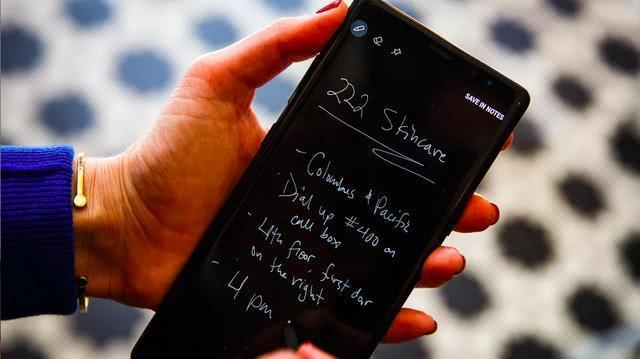 SAVE IN NOTES
222 Skincare
- Columbus & Pacific
Dial up #400 on
call box
- 4th floor, first door
on the right
- 4 pm